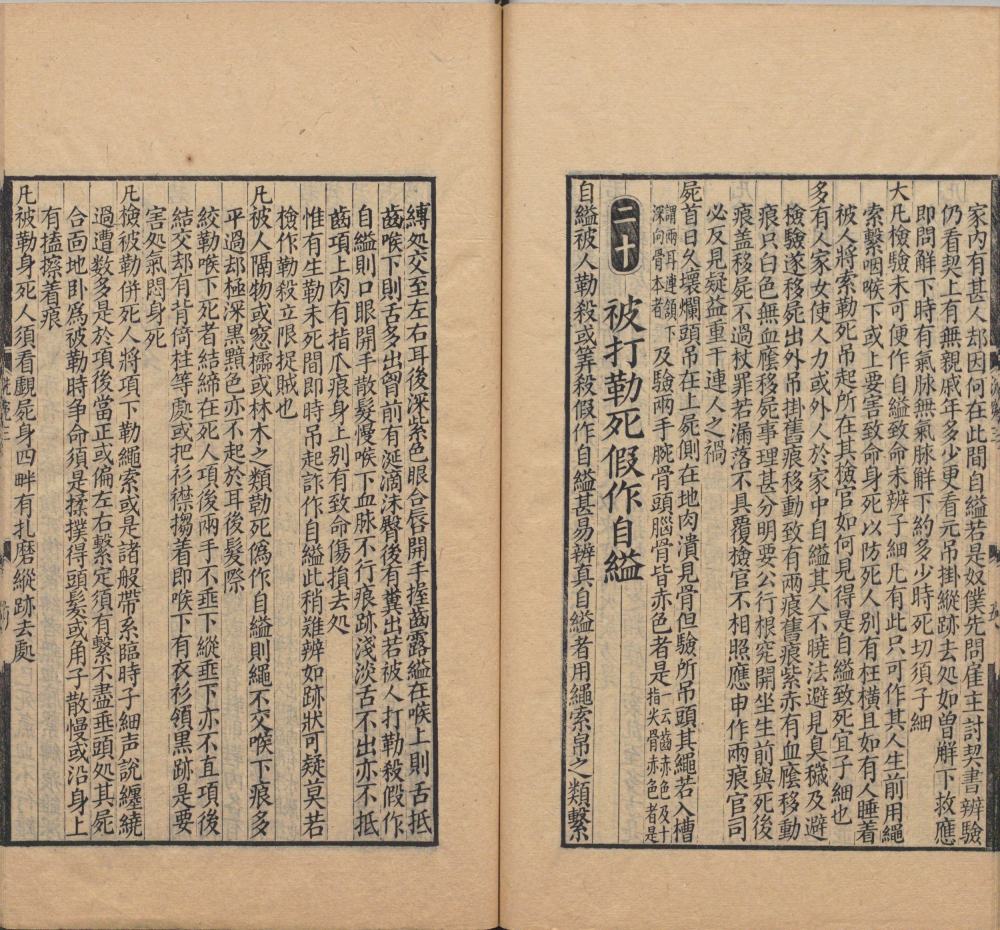 家内有甚人却因何在此間自縊若是奴僕先問雇主討契書辨驗
仍看契上有無親戚年多少更看元吊掛縱跡去処如曽觧下救應
即問觧下時有氣脉無氣脉觧下約多少時死切須子細
大凡檢驗未可便作自縊致命未辨子細凡有此只可作其人生前用繩
索繫咽喉下或上要害致命身死以防死人别有枉橫且如有人睡着
被人將索勒死吊起所在其檢官如何見得是自縊致死宜子細也
多有人家女使人力或外人於家中自縊其人不曉法避見臭穢及避
檢驗遂移死出外吊掛舊痕移動致有兩痕舊痕紫赤有血䕃移動
痕只白色無血䕃移屍事理甚分明要公行根究開坐生前與死後
痕盖移屍不過杖罪若漏落不具覆檢官不相照應申作兩痕官司
必反見疑益重干連人之禍
屍首日久壞爛頭吊在上屍側在地肉潰見骨但驗所吊頭其繩若入槽
謂兩耳連頷下
深向骨本者
及驗兩手腕骨頭腦骨皆赤色者是
一云齒赤色及十
指尖骨赤色者是
二十 被打勒死假作自縊
自縊被人勒殺或筭殺假作自縊甚易辨真自縊者用繩索帛之類繫
縛処交至左右耳後深紫色眼合唇開手握齒露縊在喉上則舌抵
齒喉下則舌多出胷前有涎滴沫臀後有糞出若被人打勒殺假作
自縊則口眼開手散髮慢喉下血脉不行痕跡淺淡舌不出亦不抵
齒項上肉有指爪痕身上别有致命傷損去処
惟有生勒未死間即時吊起詐作自縊此稍難辨如跡狀可疑莫若
檢作勒殺立限捉賊也
凡被人隔物或窓櫺或林木之類勒死偽作自縊則繩不交喉下痕多
平過却極深黑黯色亦不起於耳後髮際
絞勒喉下死者結締在死人項後兩手不垂下縱垂下亦不直項後
結交却有背倚柱等處或把衫襟搊着即喉下有衣衫領黑跡是要
害処氣悶身死
凡檢被勒併死人將項下勒繩索或是諸般帶系臨時子細声說纏繞
過遭數多是於項後當正或偏左右繫定須有繫不盡垂頭処其屍
合面地卧爲被勒時争命須是揉撲得頭髮或角子散慢或沿身上
有搕擦着痕
凡被勒身死人須看覷屍身四畔有扎磨縱跡去處